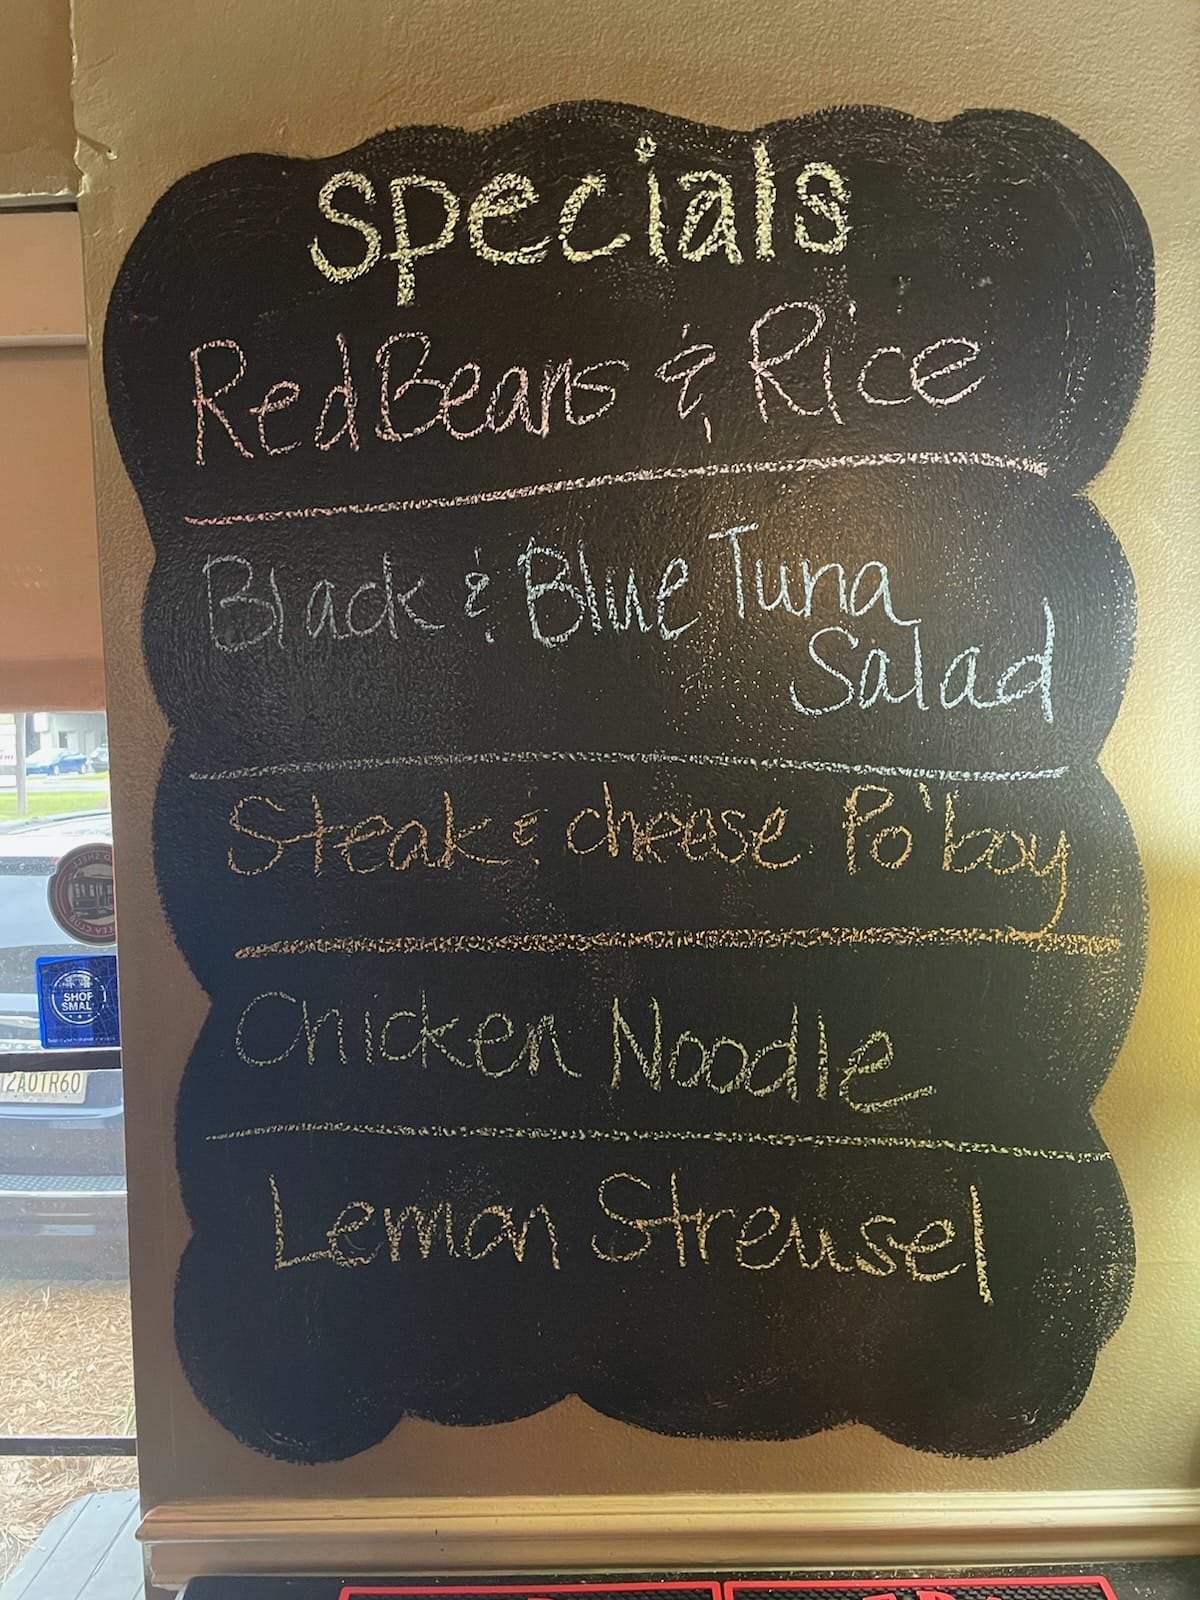 specials
Red Beans & Rice
Black & Blue Tuna
Salad
Steak & cheese Po'boy
Chicken Noodle
Lemon Streusel
SHOP
SMAL
12AOTR60